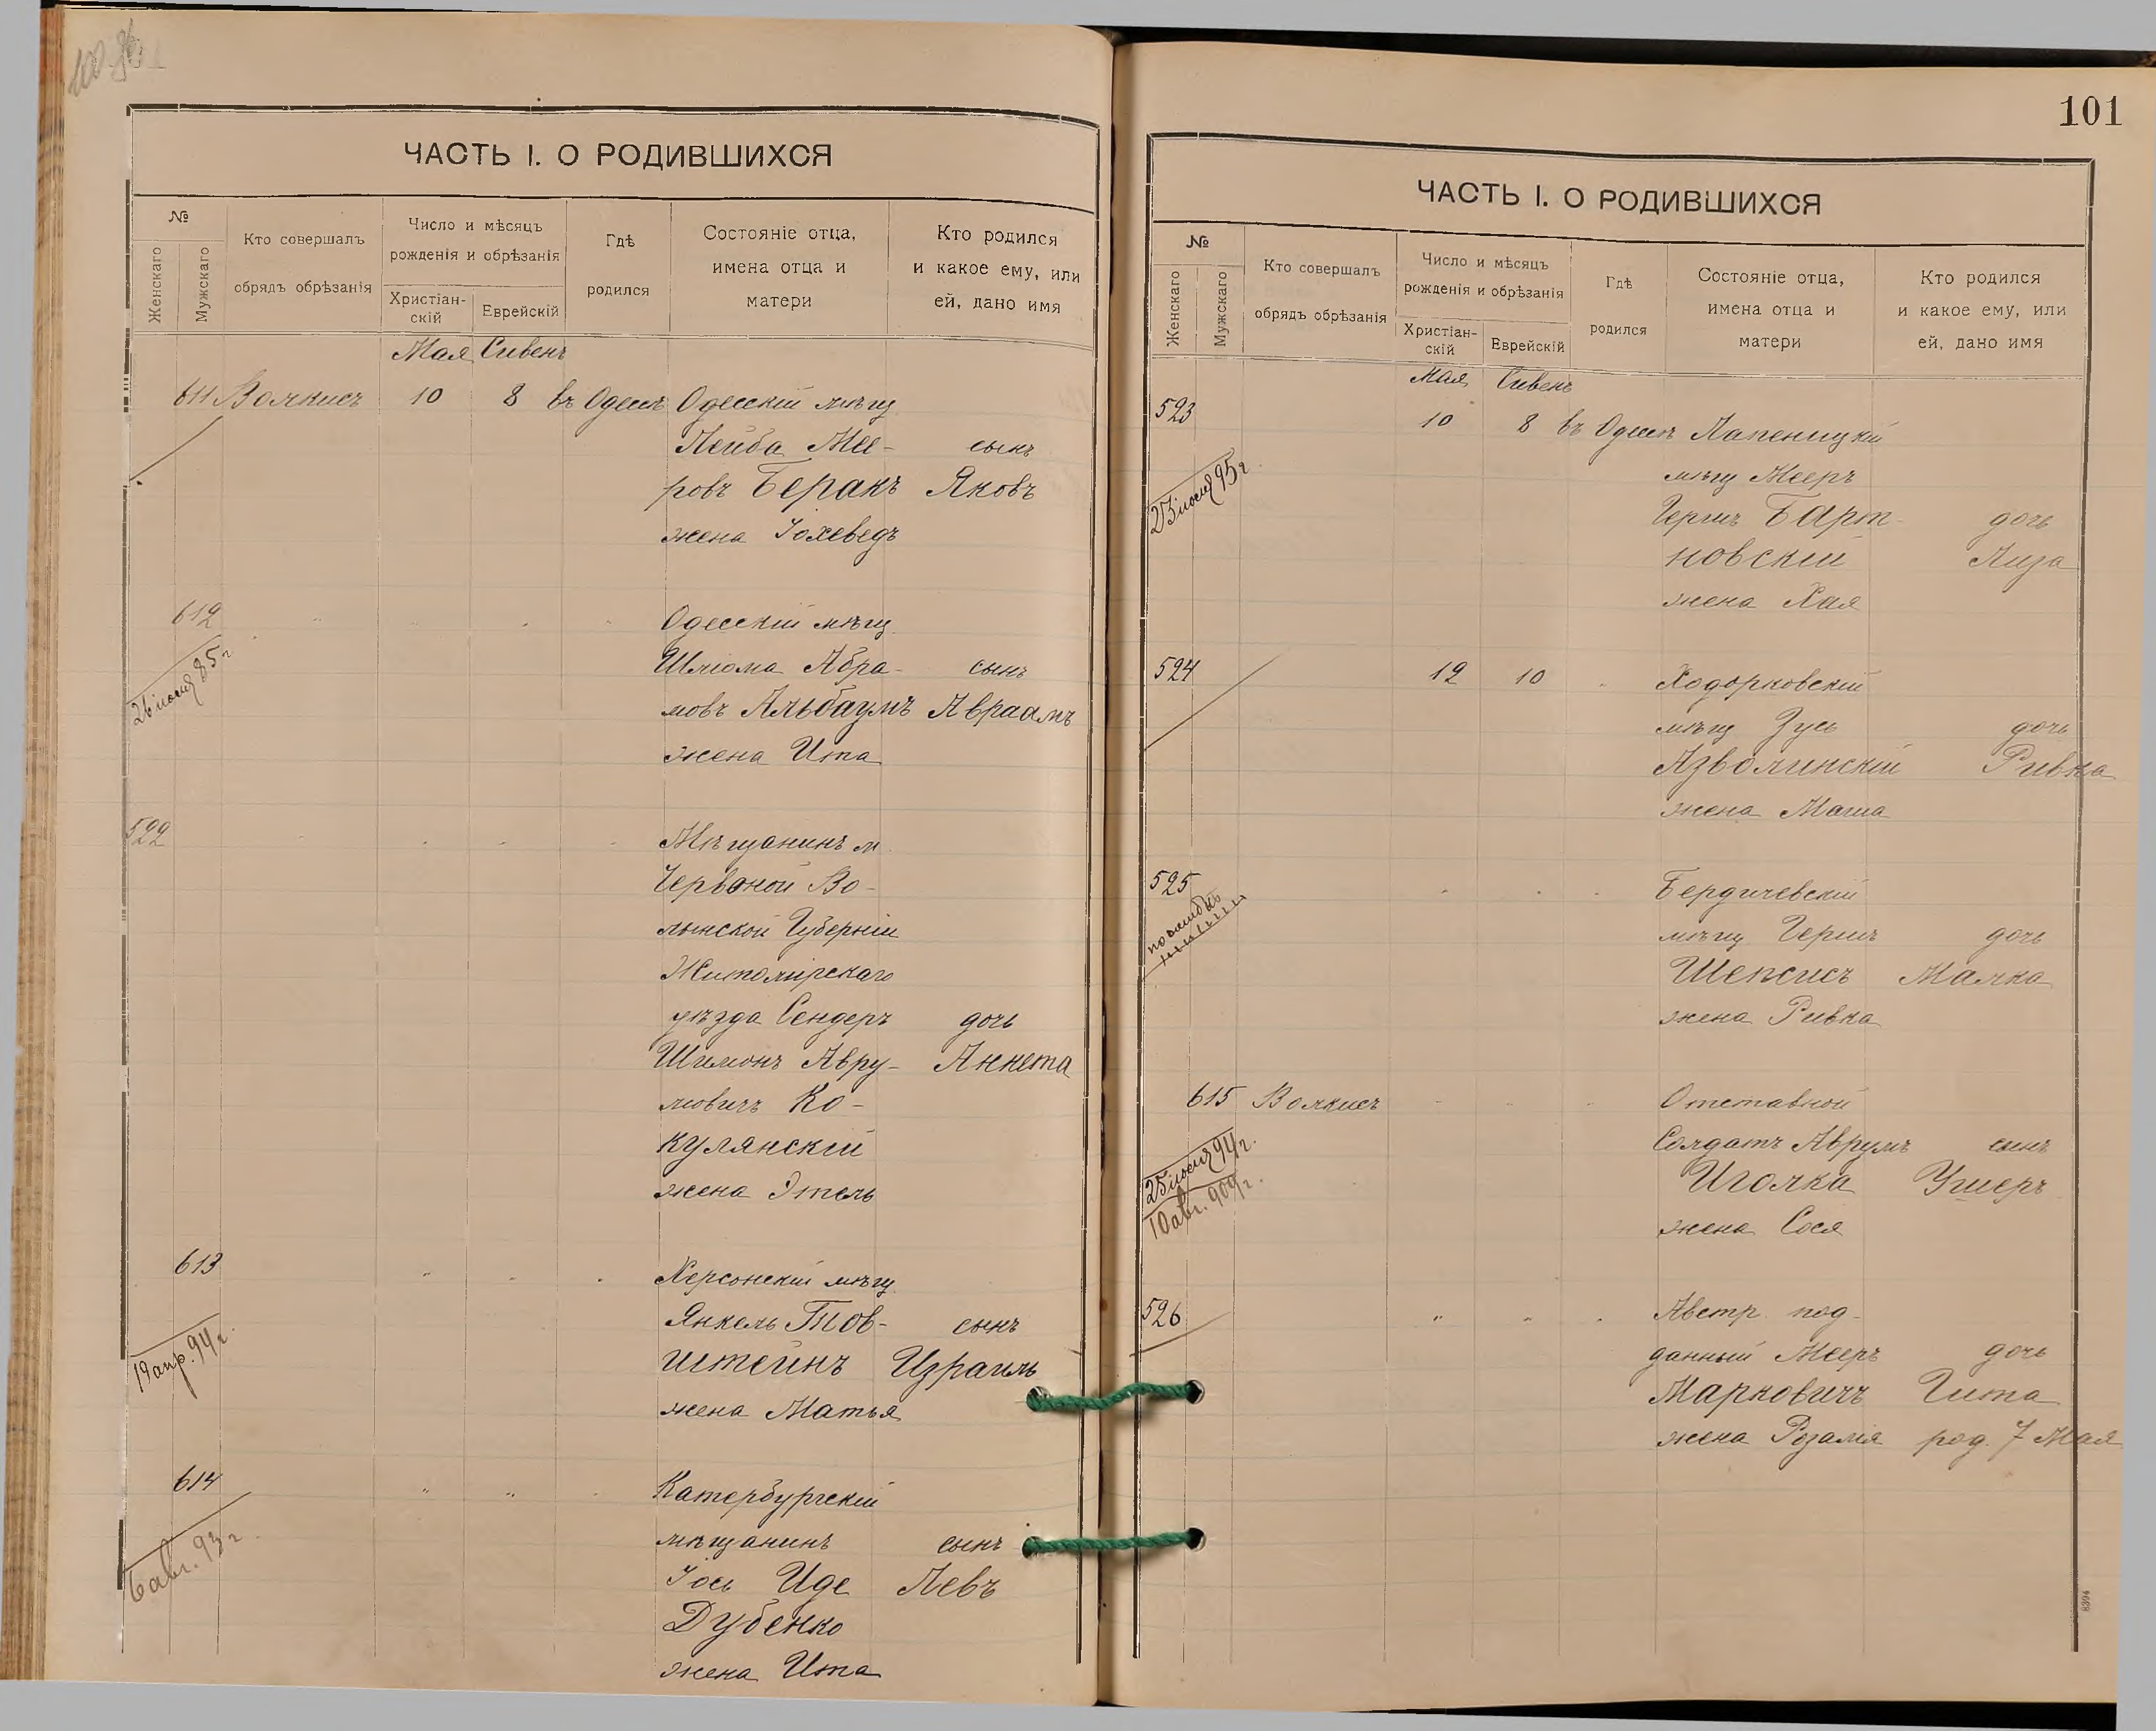 101
ЧАСТЬ I. О РОДИВШИХСЯ
№
Женскаго
Мужскаго
Кто совершалъ
обрядъ обрѣзанія
Число и мѣсяцъ
рожденія и обрѣзанія
Христіан-
скій
Еврейскій
Гдѣ
родился
Состояніе отца,
имена отца и
матери
Кто родился
и какое ему, или
ей, дано имя
Мая Сивенъ
611 Волкисъ 10 8 въ Одессѣ Одесскій мѣщ.
Лейба Мее- сынъ
ровъ Беракъ Яковъ
жена Іохеведъ
612 Одесскій мѣщ.
26 іюня 85 г.
Шлюма Абра- сынъ
мовъ Альбаумъ Авраамъ
жена Ита
522 Мѣщанинъ м.
Червоной Во-
лынской Губерніи
Житомірскаго
уѣзда Сендеръ дочь
Шимонъ Авру- Аннета
мовичъ Ко-
кулянскій
жена Этель
613 Херсонскій мѣщ.
19 апр. 94 г.
Янкель Тов- сынъ
штейнъ Израиль
жена Матья
614 Катербургскій
6 авг. 93 г.
мѣщанинъ сынъ
Іось Иде Левъ
Дубенко
жена Ита
ЧАСТЬ I. О РОДИВШИХСЯ
№
Женскаго
Мужскаго
Кто совершалъ
обрядъ обрѣзанія
Число и мѣсяцъ
рожденія и обрѣзанія
Христіан-
скій
Еврейскій
Гдѣ
родился
Состояніе отца,
имена отца и
матери
Кто родился
и какое ему, или
ей, дано имя
Мая Сивенъ
523 10 8 въ Одессѣ Папеницкій
23 іюля 95 г.
мѣщ Мееръ
Гершъ Барт- дочь
новскій Лиза
жена Хая
524 12 10 Ходорковскій
мѣщ Зусь дочь
Азволинскій Ривка
жена Маша
525 Бердичевскій
по ошибкѣ
мѣщ Гершъ дочь
Шепсисъ Малка
жена Ривка
615 Волкисъ Отставной
25 іюня 94 г.
10 авг. 909 г.
Солдатъ Аврумъ сынъ
Иголка Ушеръ
жена Сося
526 Австр. под-
данный Мееръ дочь
Марковичъ Гита
жена Розалія род. 7 Мая